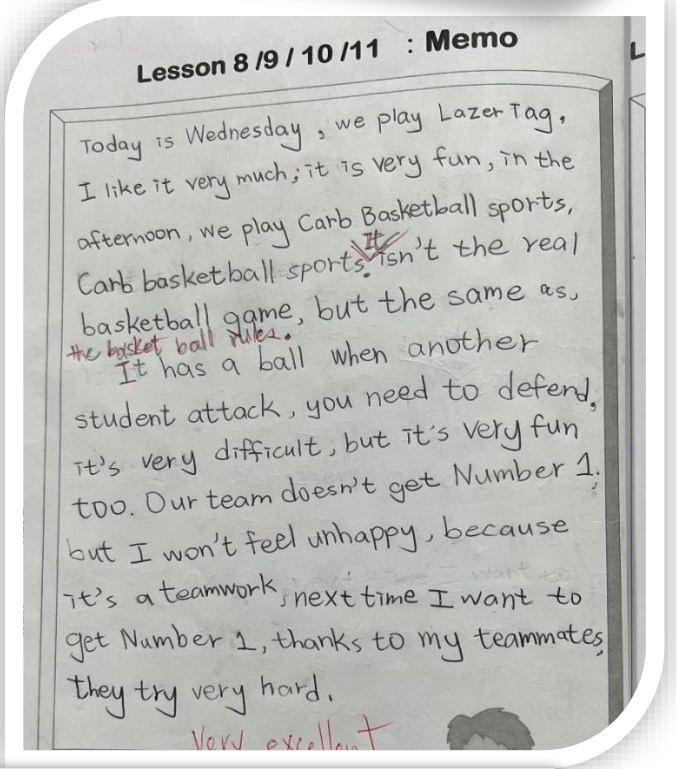 Lesson 8 /9 / 10 /11 : Memo
L
Today is Wednesday, we play Lazer Tag,
I like it very much; it is very fun, in the
afternoon, we play Carb Basketball sports,
It
Carb basketball sports. isn't the real
basketball game, but the same as,
the basket ball rules.
It has a ball when another
student attack, you need to defend,
it's very difficult, but it's very fun
too. Our team doesn't get Number 1,
but I won't feel unhappy, because
it's a teamwork, next time I want to
get Number 1, thanks to my teammates,
they try very hard.
Very excellent